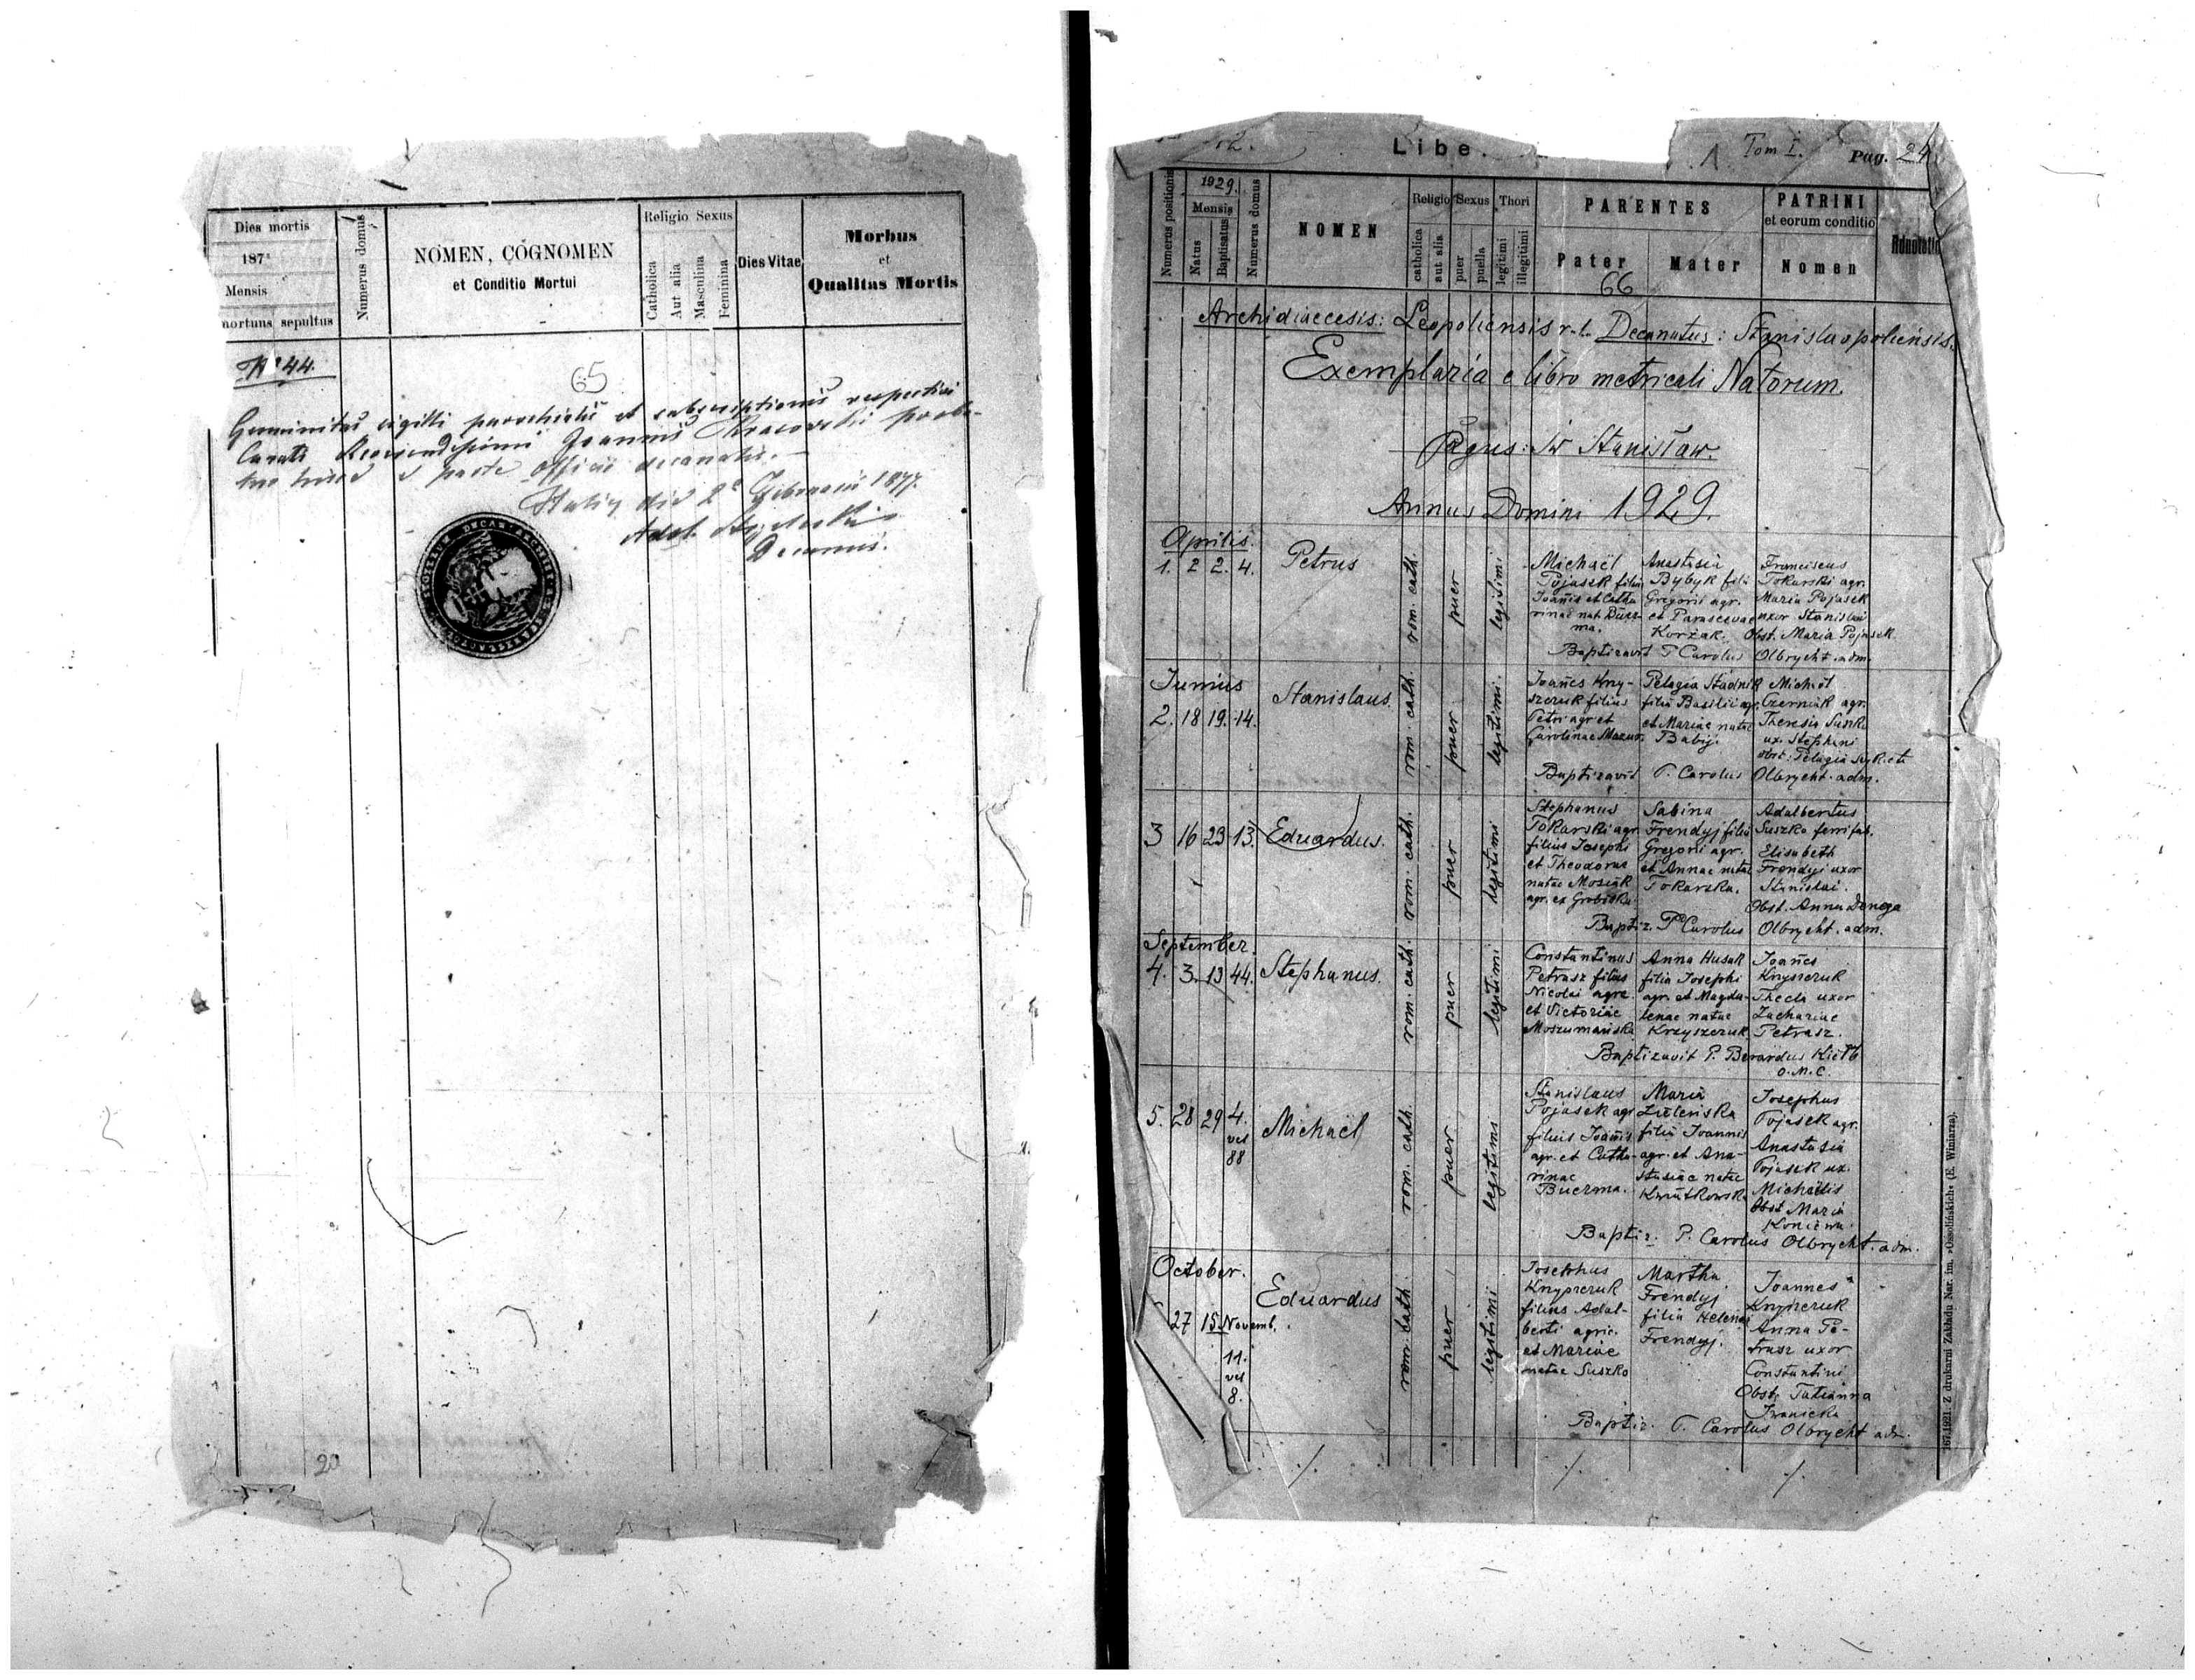 Dies mortis
187
Mensis
mortuus sepultus
Numerus domus
NOMEN, COGNOMEN
et Conditio Mortui
Religio Sexus
Catholica
Aut alia
Masculina
Feminina
Dies Vitae
Morbus
et
Qualitas Mortis
44.
65
sigilli parochialis et subscriptionis respectivi
Curati Reverendissimi Joannis
officii decanalis.
die 2a Februarii 1877.
Decanus.
20
Libe
Tom I. Pag. 24
Numerus positionis
1929.
Mensis
Natus
Baptisatus
Numerus domus
NOMEN
Religio
catholica
aut alia
Sexus
puer
puella
Thori
legitimi
illegitimi
PARENTES
Pater
Mater
PATRINI
et eorum conditio
Nomen
Adnotatio
66
Archidiaecesis: Leopoliensis r. l. Decanatus: Stanislaopoliensis.
Exemplaria e libro metricali Natorum.
Pagus: Św Stanisław.
Annus Domini 1929.
Aprilis.
1. 2 2. 4. Petrus
rom. cath.
puer
legitimi
Michaël
Pojasek filius
Joañis et Catha
rinae nat. Bucz-
ma.
Anastasia
Bybyk filia
Gregorii agr.
et Parascevae
Koržak.
Franciscus
Tokarski agr.
Maria Pojasek
uxor Stanislai
Obst. Maria Pojasek.
Baptizavit P. Carolus Olbrycht. adm.
Junius
2. 18 19. 14. Stanislaus.
rom. cath.
puer
legitimi.
Joañes Kny-
szeruk filius
Petri agr et
Carolinae Mazur.
Pelagia Stadnik
filia Basilii agr.
et Mariae natae
Babij.
Michael
Czerniak agr.
Theresia Suszko
ux. Stephani
obst: Pelagia
Baptizavit P. Carolus Olbrycht. adm.
3 16 23 13. Eduardus.
rom. cath.
puer
legitimi
Stephanus
Tokarski agr.
filius Josephi
et Theodorae
natae Mosiak
agr. ex Grobiska
Sabina
Frendyj filia
Gregorii agr.
et Annae natae
Tokarska.
Adalbertus
Suszko ferri fab.
Elisabeth
Frendyj uxor
Stanislai.
Obst. Anna Denega
Baptiz. P. Carolus Olbrycht. adm.
September
4. 3. 13 44. Stephanus.
rom. cath.
puer
legitimi
Constantinus
Petrasz filius
Nicolai agrc.
et Victoriae
Moszumańska
Anna Husak
filia Josephi
agr. et Magda-
lenae natae
Krzyszeruk
Joañes
Knyszeruk
Thecla uxor
Zachariae
Petrasz.
Baptizavit P. Berardus Kiełb
O.M.C.
5. 28 29 4.
vel
88
Michaël
rom. cath.
puer
legitimi
Stanislaus
Pojasek agr
filius Joañis
agr. et Catha-
rinae
Buczma.
Maria
Zieleńska
filia Joannis
agr. et Ana-
stasiae natae
Kwiatkowska
Josephus
Pojasek agr.
Anastasia
Pojasek ux.
Michaëlis
Obst Maria
Baptiz. P. Carolus Olbrycht. adm.
October.
27 15 Novemb.
11.
vel
8.
Eduardus
rom. cath.
puer
legitimi
Josephus
Knyszeruk
filius Adal-
berti agric.
et Mariae
natae Suszko
Martha
Frendyj
filia Helenae
Frendyj.
Joannes
Knyszeruk
Anna Pe-
trasz uxor
Constantini
Obst. Tatianna
Iwanicka
Baptiz. P. Carolus Olbrycht adm.
167.1921. Z drukarni Zakładu Nar. im. »Ossolińskich« (E. Winiarza).